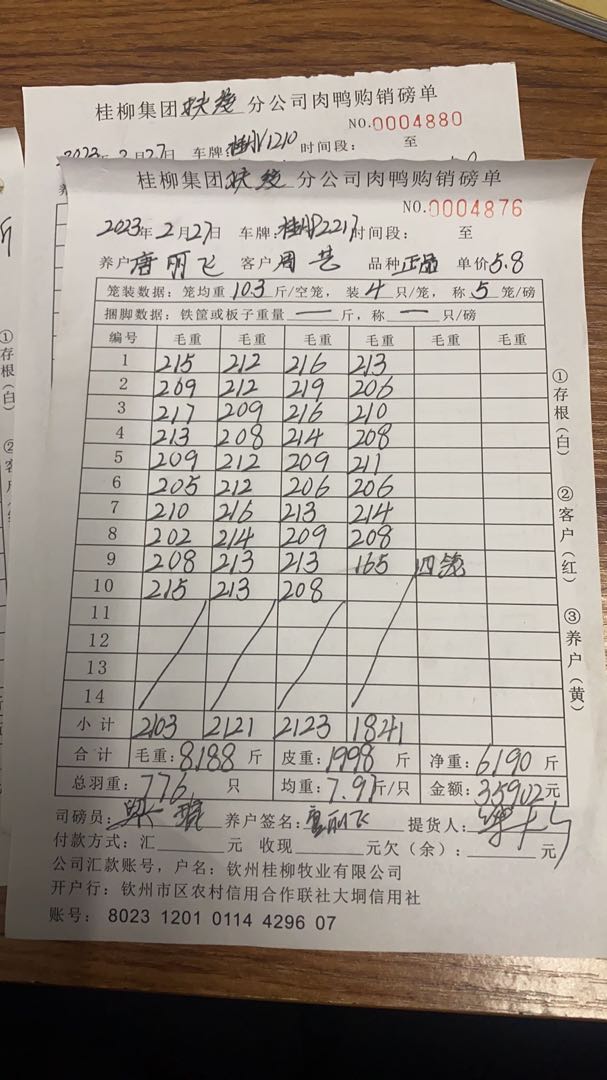 桂柳集团扶绥分公司肉鸭购销磅单
NO.0004880
2023年2月27日 车牌: 1210 时间段: 至
桂柳集团扶绥分公司肉鸭购销磅单
NO.0004876
2023年2月27日 车牌: 2217 时间段: 至
养户 唐丽飞 客户 周 品种 正品 单价 5.8
笼装数据: 笼均重 10.3 斤/空笼, 装 4 只/笼, 称 5 笼/磅
捆脚数据: 铁筐或板子重量 — 斤, 称 — 只/磅
编号 毛重 毛重 毛重 毛重 毛重 毛重
1 215 212 216 213
2 209 212 219 206
3 217 209 216 210
4 213 208 214 208
5 209 212 209 211
6 205 212 206 206
7 210 216 213 214
8 202 214 209 208
9 208 213 213 165 四笼
10 215 213 208
11
12
13
14
小计 2103 2121 2123 1841
合计 毛重: 8188 斤 皮重: 1998 斤 净重: 6190 斤
总羽重: 776 只 均重: 7.97 斤/只 金额: 35902 元
司磅员: 养户签名: 唐丽飞 提货人:
付款方式: 汇 元 收现 元欠(余): 元
公司汇款账号, 户名: 钦州桂柳牧业有限公司
开户行: 钦州市区农村信用合作联社大垌信用社
账号: 8023 1201 0114 4296 07
①存根(白)
②客户(红)
③养户(黄)